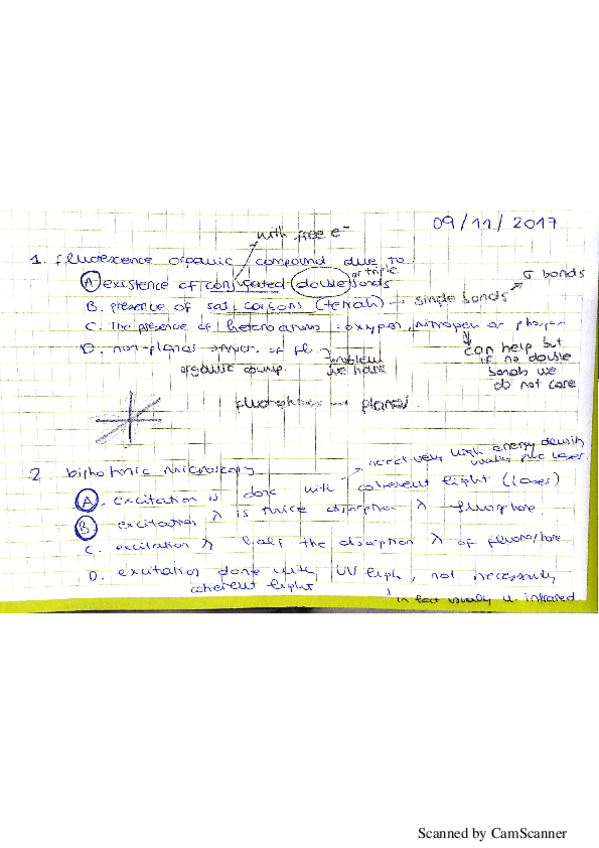 09/11/2017
with free e-
1. fluorescence organic compound due to
or triple
A existence of conjugated double bonds
σ bonds
B. presence of sat. carbons (tetrah) → single bonds
C. the presence of heteroatoms: oxygen, nitrogen or
can help but if no double bonds we do not care
D. non-planar of fl
organic comp.
problem we have
fluorophores → planar.
2. biphotonic microscopy
need very high energy density
laser.
A. excitation is done with coherent light (laser)
B. excitation λ is twice absorption λ fluorophore.
C. excitation λ half the absorption λ of fluorophore
D. excitation done with UV light, not necessarily
coherent light
in fact usually infrared
Scanned by CamScanner